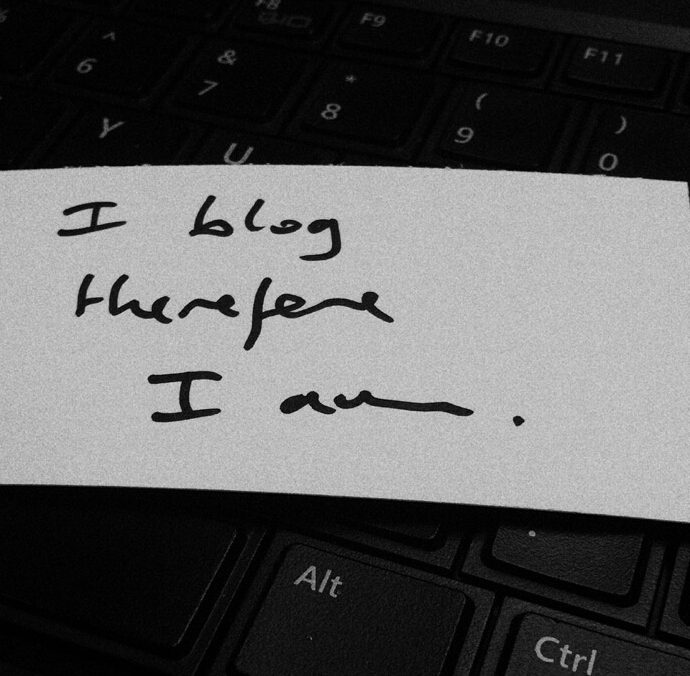 F8 F9 F10 F11
^ & * ( )
6 7 8 9 0
Y U
I blog
therefore
I am.
Alt
Ctrl